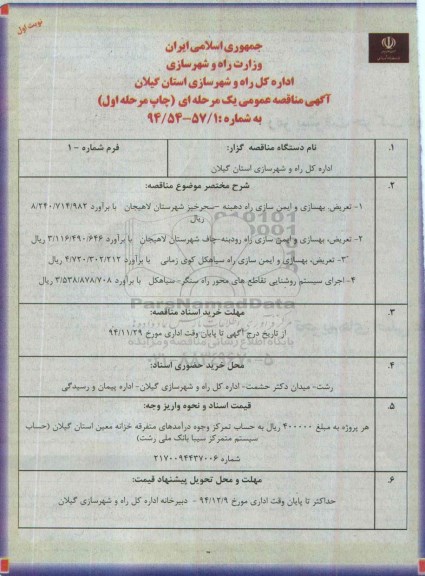 نوبت اول
جمهوری اسلامی ایران
وزارت راه و شهرسازی
اداره کل راه و شهرسازی استان گیلان
آگهی مناقصه عمومی یک مرحله ای (چاپ مرحله اول)
به شماره :۹۴/۵۴-۵۷/۱
۱. نام دستگاه مناقصه گزار: فرم شماره - ۱
اداره کل راه و شهرسازی استان گیلان
۲. شرح مختصر موضوع مناقصه:
۱- تعریض، بهسازی و ایمن سازی راه دهبنه -سحرخیز شهرستان لاهیجان با برآورد ۸/۲۴۰/۷۱۴/۹۸۲
ریال
۲- تعریض، بهسازی و ایمن سازی راه رودبنه-چاف شهرستان لاهیجان با برآورد ۳/۱۱۶/۴۹۰/۶۴۶ ریال
۳- تعریض، بهسازی و ایمن سازی راه سیاهکل کوی زمانی با برآورد ۴/۷۲۰/۳۰۲/۲۱۲ ریال
۴-اجرای سیستم روشنایی تقاطع های محور راه سنگر-سیاهکل با برآورد ۳/۵۳۸/۸۷۸/۷۰۸ ریال
ParsNamadData
۳. مهلت خرید اسناد مناقصه:
از تاریخ درج آگهی تا پایان وقت اداری مورخ ۹۴/۱۱/۲۹
پایگاه اطلاع رسانی مناقصه و مزایده
۴. محل خرید حضوری اسناد:
رشت- میدان دکتر حشمت- اداره کل راه و شهرسازی گیلان- اداره پیمان و رسیدگی
۵. قیمت اسناد و نحوه واریز وجه:
هر پروژه به مبلغ ۴۰۰۰۰۰ ریال به حساب تمرکز وجوه درآمدهای متفرقه خزانه معین استان گیلان (حساب
سیستم متمرکز سیبا بانک ملی رشت)
شماره ۲۱۷۰۰۹۴۴۳۷۰۰۶
۶. مهلت و محل تحویل پیشنهاد قیمت:
حداکثر تا پایان وقت اداری مورخ ۹۴/۱۲/۹ - دبیرخانه اداره کل راه و شهرسازی گیلان